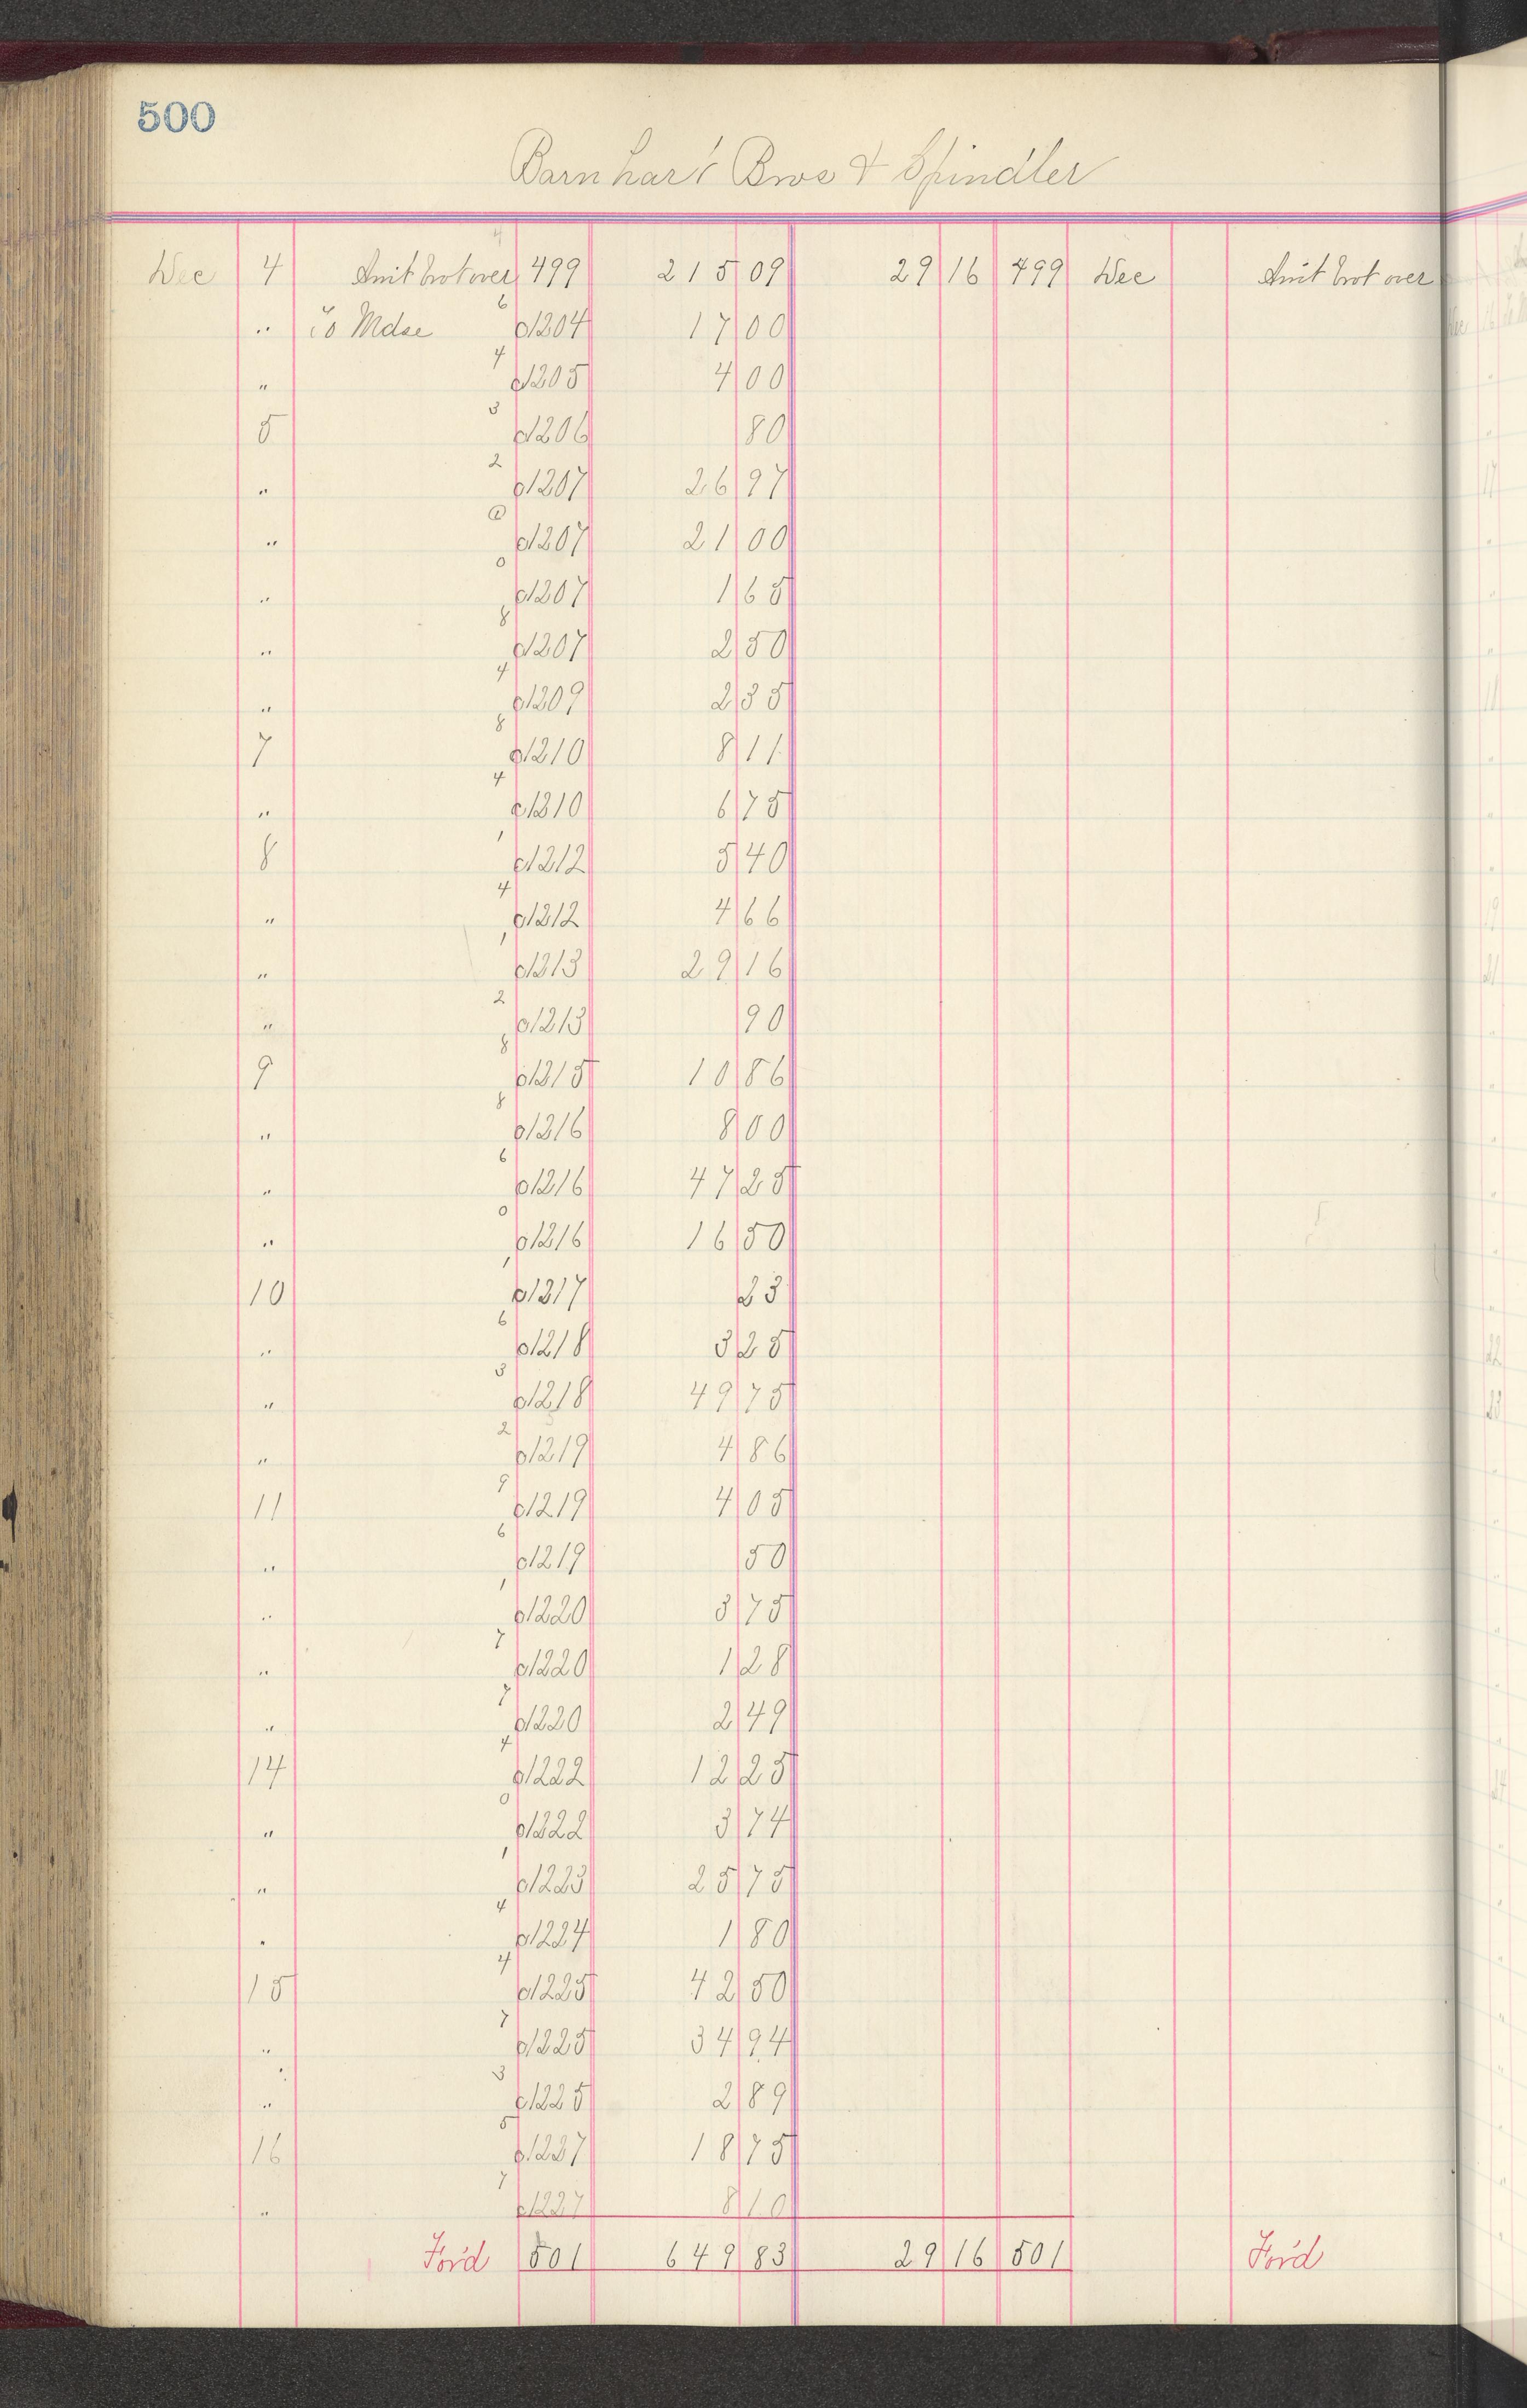 500
Barnhart Bros & Spindler
Dec 4 Amt brot over 499 215 09 29 16 499 Dec Amt brot over
" To Mdse 6 c1204 17 00
" 4 c1205 4 00
5 3 c1206 80
" 2 c1207 26 97
" c1207 21 00
" 0 c1207 1 65
" 8 c1207 2 50
" 4 c1209 2 35
7 8 c1210 8 11
" 4 c1210 6 75
8 1 c1212 5 40
" 4 c1212 4 66
" 1 c1213 29 16
" 2 c1213 90
9 8 c1215 10 86
" 8 c1216 8 00
" 6 c1216 47 25
" 0 c1216 16 50
10 1 c1217 23
" 6 c1218 3 25
" 3 c1218 49 75
" 2 c1219 4 86
11 9 c1219 4 05
" 6 c1219 50
" 1 c1220 3 75
" 7 c1220 1 28
" 7 c1220 2 49
14 4 c1222 12 25
" 0 c1222 3 74
" 1 c1223 25 75
" 4 c1224 1 80
15 4 c1225 42 50
" 7 c1225 34 94
" 3 c1225 2 89
16 5 c1227 18 75
" 7 c1227 8 10
Ford 501 649 83 29 16 501 Ford